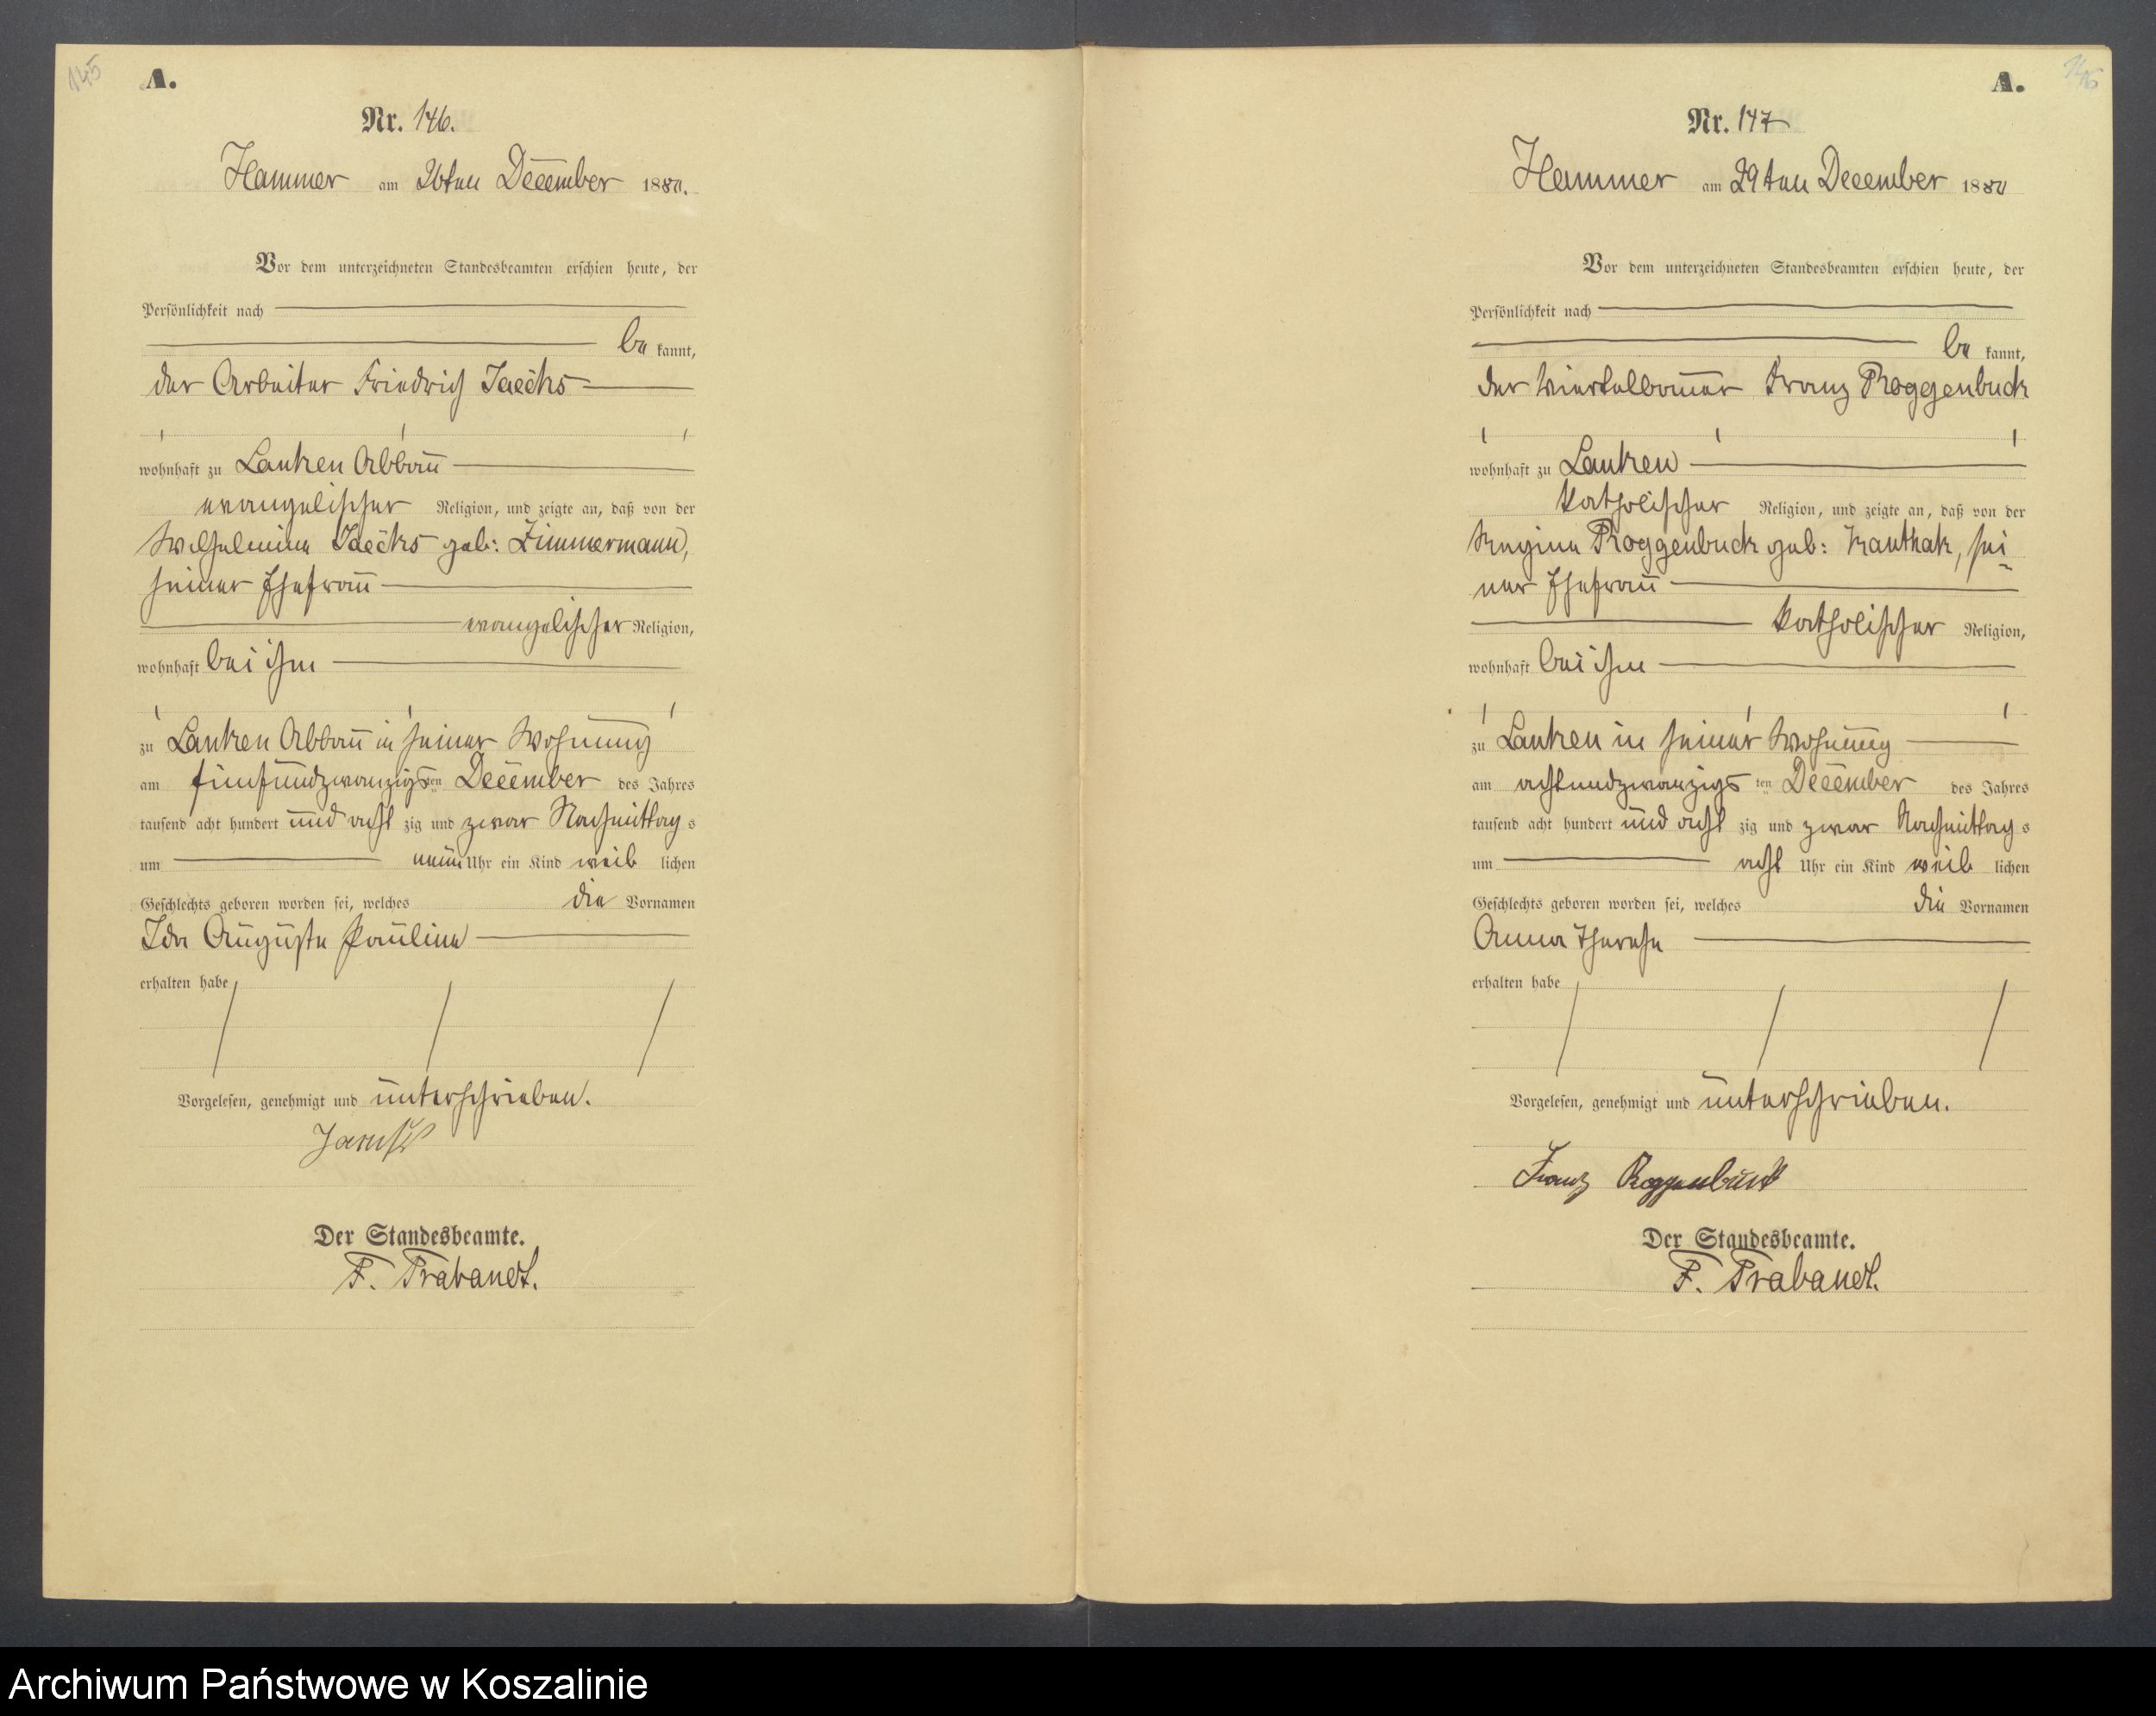 145
A.
Nr. 146.
Hammer am 26ten December 1880.
Vor dem unterzeichneten Standesbeamten erschien heute, der
Persönlichkeit nach
be kannt,
der Arbeiter Friedrich Jaecks
wohnhaft zu Lanken Abbau
evangelischer Religion, und zeigte an, daß von der
Wilhelmine Jaecks geb: Zimmermann,
seiner Ehefrau
evangelischer Religion,
wohnhaft bei ihm
zu Lanken Abbau in seiner Wohnung
am fünfundzwanzigsten December des Jahres
tausend acht hundert und acht zig und zwar Nachmittag s
um neun Uhr ein Kind weib lichen
Geschlechts geboren worden sei, welches die Vornamen
Ida Auguste Pauline
erhalten habe
Vorgelesen, genehmigt und unterschrieben.
Der Standesbeamte.
F. Trabandt.
146
A.
Nr. 147
Hammer am 29ten December 1880
Vor dem unterzeichneten Standesbeamten erschien heute, der
Persönlichkeit nach
be kannt,
der Viertelbauer Franz Roggenbuck
wohnhaft zu Lanken
katholischer Religion, und zeigte an, daß von der
Regine Roggenbuck geb: Kanthak, sei
ner Ehefrau
katholischer Religion,
wohnhaft bei ihm
zu Lanken in seiner Wohnung
am achtundzwanzigs ten December des Jahres
tausend acht hundert und acht zig und zwar Nachmittag s
um acht Uhr ein Kind weib lichen
Geschlechts geboren worden sei, welches die Vornamen
Anna Therese
erhalten habe
Vorgelesen, genehmigt und unterschrieben.
Franz Roggenbuck
Der Standesbeamte.
F. Trabandt.
Archiwum Państwowe w Koszalinie